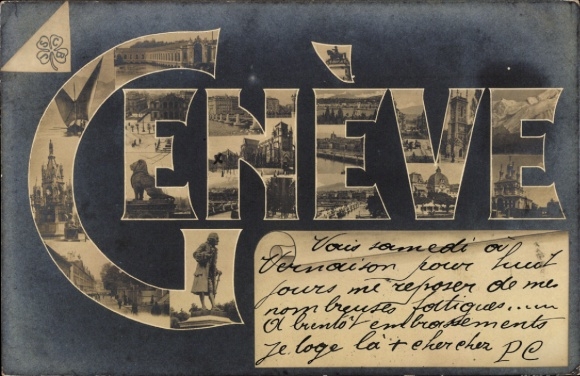 C
B
S
C
GENÈVE
Vais samedi à
Vernaison pour huit
jours me reposer de mes
nombreuses fatigues.....
A bientôt embrassements
je loge là + cherchez PC